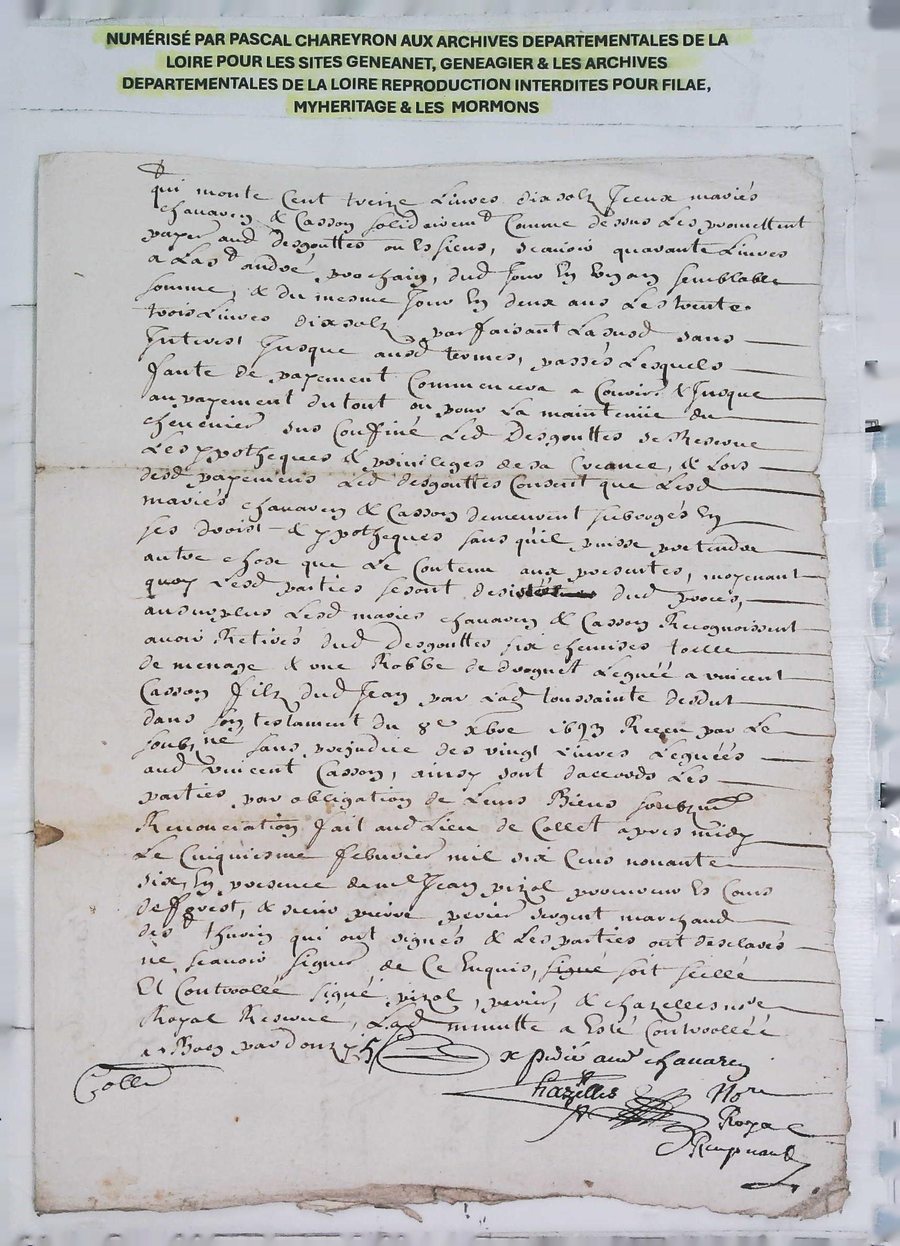 NUMÉRISÉ PAR PASCAL CHAREYRON AUX ARCHIVES DEPARTEMENTALES DE LA
LOIRE POUR LES SITES GENEANET, GENEAGIER & LES ARCHIVES
DEPARTEMENTALES DE LA LOIRE REPRODUCTION INTERDITES POUR FILAE,
MYHERITAGE & LES MORMONS
qui monte Cent treize Livres dixsolz Iceux mariés
chavaren & Casson solidairem^t Comme dessus Les promettent
payer aud Desgouttes ou Es siens, scavoir quarante Livres
a La s^t andré prochain, dud Jour En Un an semblable
somme, & du mesme Jour En deux ans Les trente
trois Livres dixsolz par faisant La susd sans
Interest Jusque ausd termes, passés Lesquels
faute de payement Commencera a Courir & Jusque
au payement du tout ou pour La maintenüe du
chenevier sus Confiné Led Desgouttes se Reserve
Les ypotheques & privileges de sa Creance, & Lors
desd payemens Led desgouttes Consent que Lesd
mariés chavaren & Casson demeurent subrogés En
ses droist & ypotheques sans qu'il puisse pretendre
autre chose que Le Contenu aux presentes, moyenant
quoy Lesd parties se sont desistées dud procès,
au surplus Lesd mariés chavaren & Casson Recognoissent
avoir Retirés dud Desgouttes six chemises toille
de menage & une Robbe de droguet Leguée a vincent
Casson fils dud Jean par Lad toussainte desdut
dans son testament du 8^e xbre 1693 Receu par Le
soubz^né sans prejudice des vingt Livres Leguées
aud vincent Casson, ainsy sont daccords Les
parties par obligation de Leurs Biens
Renonciation fait aud Lieu de Collet apres midy
Le Cinquiesme febvrier mil six Cens nonante
six, En presence de m^e Jean pizal procureur Es Cours
de fforest, & sieur pierre perier sergent marchand
de s^t thurin qui ont signés & Les parties ont desclarés
ne scavoir signer de Ce Enquis, signé soit scellé
Et Controollé signé pizal, perier, & chazelles no^re
Royal Reservé, Lad minutte a Esté Controollée
a Boen par donzy
x pedié aud chavaren
Colle
Chazelles No^re
Royal